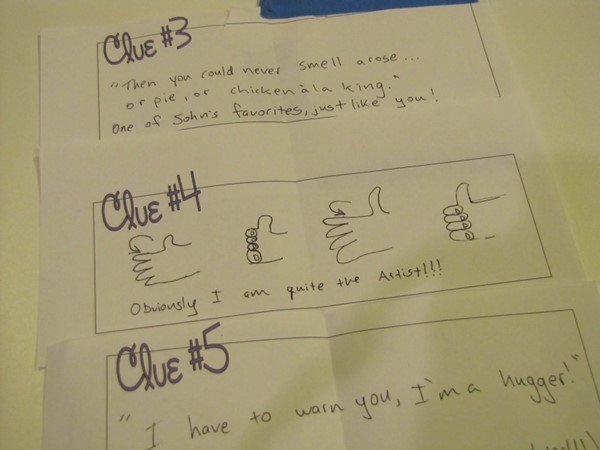 Clue #3
"Then you could never smell a rose...
or pie, or chicken à la king."
One of John's favorites, just like you!
Clue #4
Obviously I am quite the Artist!!!
Clue #5
"I have to warn you, I'm a hugger!"